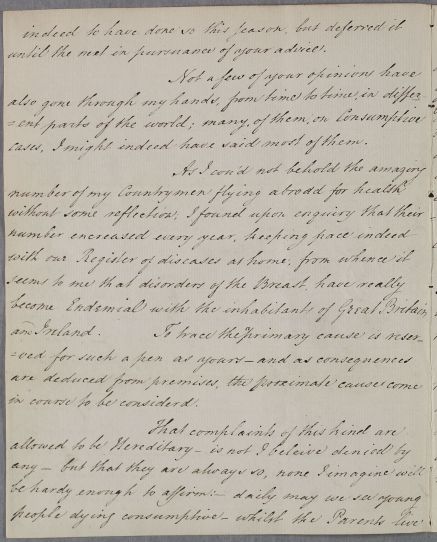 indeed to have done so this season, but deferred it
until the next in pursuance of your advice.
Not a few of your opinions have
also gone through my hands, from time to time, in differ-
=ent parts of the world; many, of them, on Consumptive
cases, I might indeed have said most of them.
As I cou'd not behold the amazing
number of my Countrymen flying abroad for health
without some reflection, I found upon enquiry that their
number encreased every year, keeping pace indeed
with our Register of diseases at home, from whence it
seems to me that disorders of the Breast, have really
become Endemial with the inhabitants of Great Britain
and Ireland. To trace the primary cause is reser-
=ved for such a pen as yours - and as consequences
are deduced from premises, the proximate cause come
in course to be considerd.
That complaints of this kind are
allowed to be Hereditary - is not I beleive denied by
any - but that they are always so, none I imagine will
be hardy enough to affirm: - daily may we see young
people dying consumptive - whilst the Parents live